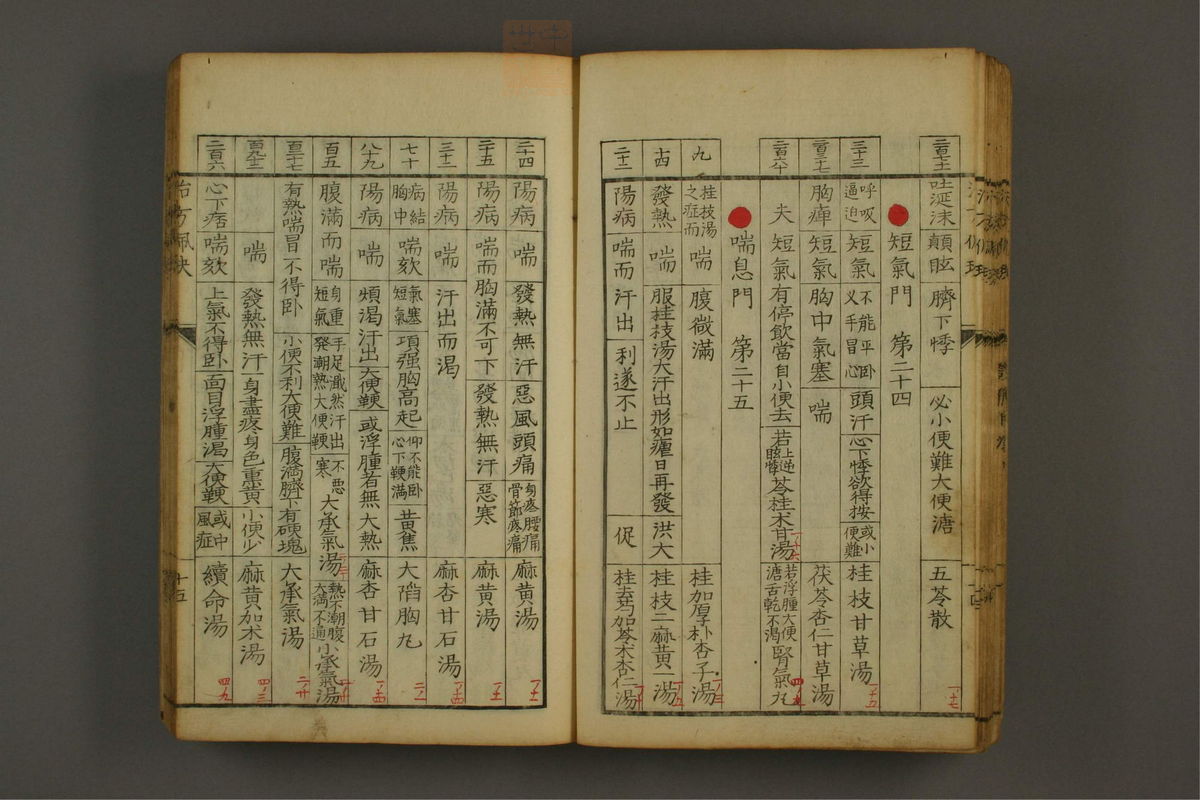 吐涎沫 顛眩 臍下悸 必小便難大便溏 五苓散 一ノ十七
短氣門 第二十四
三十三 呼吸逼迫 短氣 不能平臥叉手冒心 頭汗 心下悸欲得按 或小便難 桂枝甘草湯 一ノ十五
胸痺 短氣 胸中氣塞 喘 茯苓杏仁甘草湯
夫 短氣有停飲當自小便去 若上逆眩悸 苓桂朮甘湯 若浮腫大便溏舌乾不渴 腎氣丸
喘息門 第二十五
九 桂枝湯之症而 喘 腹微滿 桂加厚朴杏子湯
十四 發熱 喘 服桂枝湯大汗出形如瘧日再發 洪大 桂枝二麻黃一湯
二十二 陽病 喘而汗出 利遂不止 促 桂去芍加苓朮杏仁湯
二十四 陽病 喘 發熱無汗 惡風頭痛 身疼腰痛骨節疼痛 麻黃湯
二十五 陽病 喘而胸滿不可下 發熱無汗 惡寒 麻黃湯
三十二 陽病 喘 汗出而渴 麻杏甘石湯
七十 病結胸中 喘欬 氣塞短氣 項强胸高起 仰不能臥心下鞕滿 黃蕉 大陷胸丸
八十九 陽病 喘 煩渴汗出 大便鞕 或浮腫者無大熱 麻杏甘石湯
百五 腹滿而喘 身重短氣 手足濈然汗出發潮熱大便鞕 不惡寒 大承氣湯 熱不潮腹大滿不通小承氣湯
百三十七 有熱喘冒不得臥 小便不利大便難 腹滿臍下有硬塊 大承氣湯
喘 發熱無汗 身盡疼身色重黃 小便少 麻黃加朮湯
二百六 心下痞 喘欬 上氣不得臥 面目浮腫渴 大便鞕 或中風症 續命湯
十五